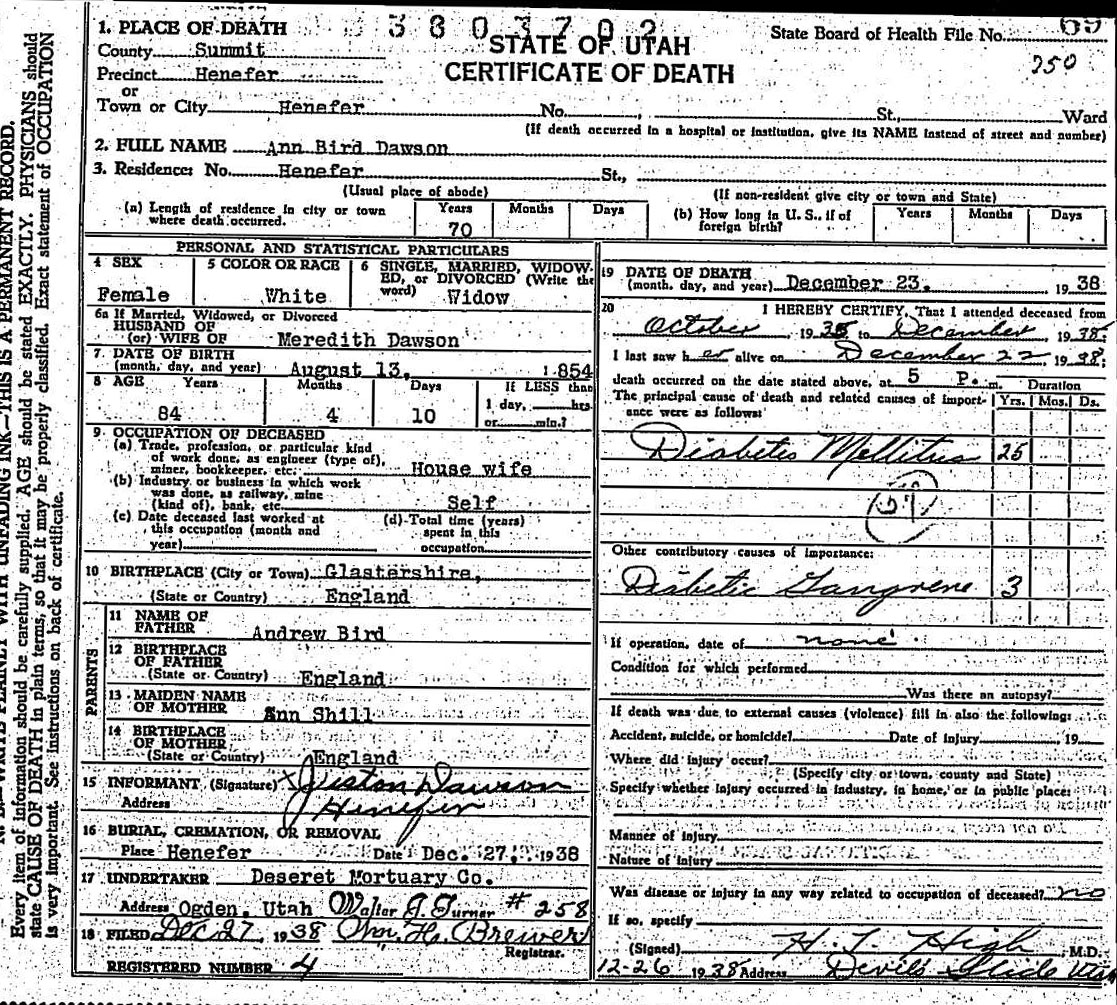 3803702
1. PLACE OF DEATH
County Summit
Precinct Henefer
or
Town or City Henefer No. St., Ward
STATE OF UTAH
CERTIFICATE OF DEATH
State Board of Health File No. 69
250
(If death occurred in a hospital or institution, give its NAME instead of street and number)
2. FULL NAME Ann Bird Dawson
3. Residence: No. Henefer St.,
(Usual place of abode) (If non-resident give city or town and State)
(a) Length of residence in city or town where death occurred. Years 70 Months Days
(b) How long in U. S., if of foreign birth? Years Months Days
PERSONAL AND STATISTICAL PARTICULARS
4 SEX Female
5 COLOR OR RACE White
6 SINGLE, MARRIED, WIDOWED, or DIVORCED (Write the word) Widow
6a If Married, Widowed, or Divorced
HUSBAND OF
(or) WIFE OF Meredith Dawson
7 DATE OF BIRTH
(month, day, and year) August 13, 1854
8 AGE Years 84 Months 4 Days 10 If LESS than 1 day, hrs. or min.?
9 OCCUPATION OF DECEASED
(a) Trade, profession, or particular kind
of work done, as engineer (type of),
miner, bookkeeper, etc. House wife
(b) Industry or business in which work
was done, as railway, mine
(kind of), bank, etc. Self
(c) Date deceased last worked at
this occupation (month and
year)
(d) Total time (years)
spent in this
occupation
10 BIRTHPLACE (City or Town) Glastershire,
(State or Country) England
PARENTS
11 NAME OF
FATHER Andrew Bird
12 BIRTHPLACE
OF FATHER
(State or Country) England
13 MAIDEN NAME
OF MOTHER Ann Shill
14 BIRTHPLACE
OF MOTHER
(State or Country) England
15 INFORMANT (Signature) X Juston Dawson
Address Henefer
16 BURIAL, CREMATION, OR REMOVAL
Place Henefer Date Dec. 27, 1938
17 UNDERTAKER Deseret Mortuary Co.
Address Ogden, Utah Walter J. Turner # 258
18 FILED Dec 27, 1938 Chas. H. Brewer
Registrar.
REGISTERED NUMBER 4
19 DATE OF DEATH
(month, day, and year) December 23, 1938
20 I HEREBY CERTIFY, That I attended deceased from
October 1935 to December 1938.
I last saw her alive on December 22 1938.
death occurred on the date stated above, at 5 P. m. Duration
The principal cause of death and related causes of importance were as follows: Yrs. Mos. Ds.
Diabetes Mellitus 25
59
Other contributory causes of importance:
Diabetic Gangrene 3
If operation, date of none
Condition for which performed
Was there an autopsy?
If death was due to external causes (violence) fill in also the following:
Accident, suicide, or homicide? Date of injury 19
Where did injury occur?
(Specify city or town, county and State)
Specify whether injury occurred in industry, in home, or in public place:
Manner of injury
Nature of injury
Was disease or injury in any way related to occupation of deceased? no
If so, specify
(Signed) H. T. High M.D.
12-26 1938 Address Devils Slide Utah
N. B.—WRITE PLAINLY WITH UNFADING INK—THIS IS A PERMANENT RECORD.
Every item of information should be carefully supplied. AGE should be stated EXACTLY. PHYSICIANS should
state CAUSE OF DEATH in plain terms, so that it may be properly classified. Exact statement of OCCUPATION
is very important. See instructions on back of certificate.